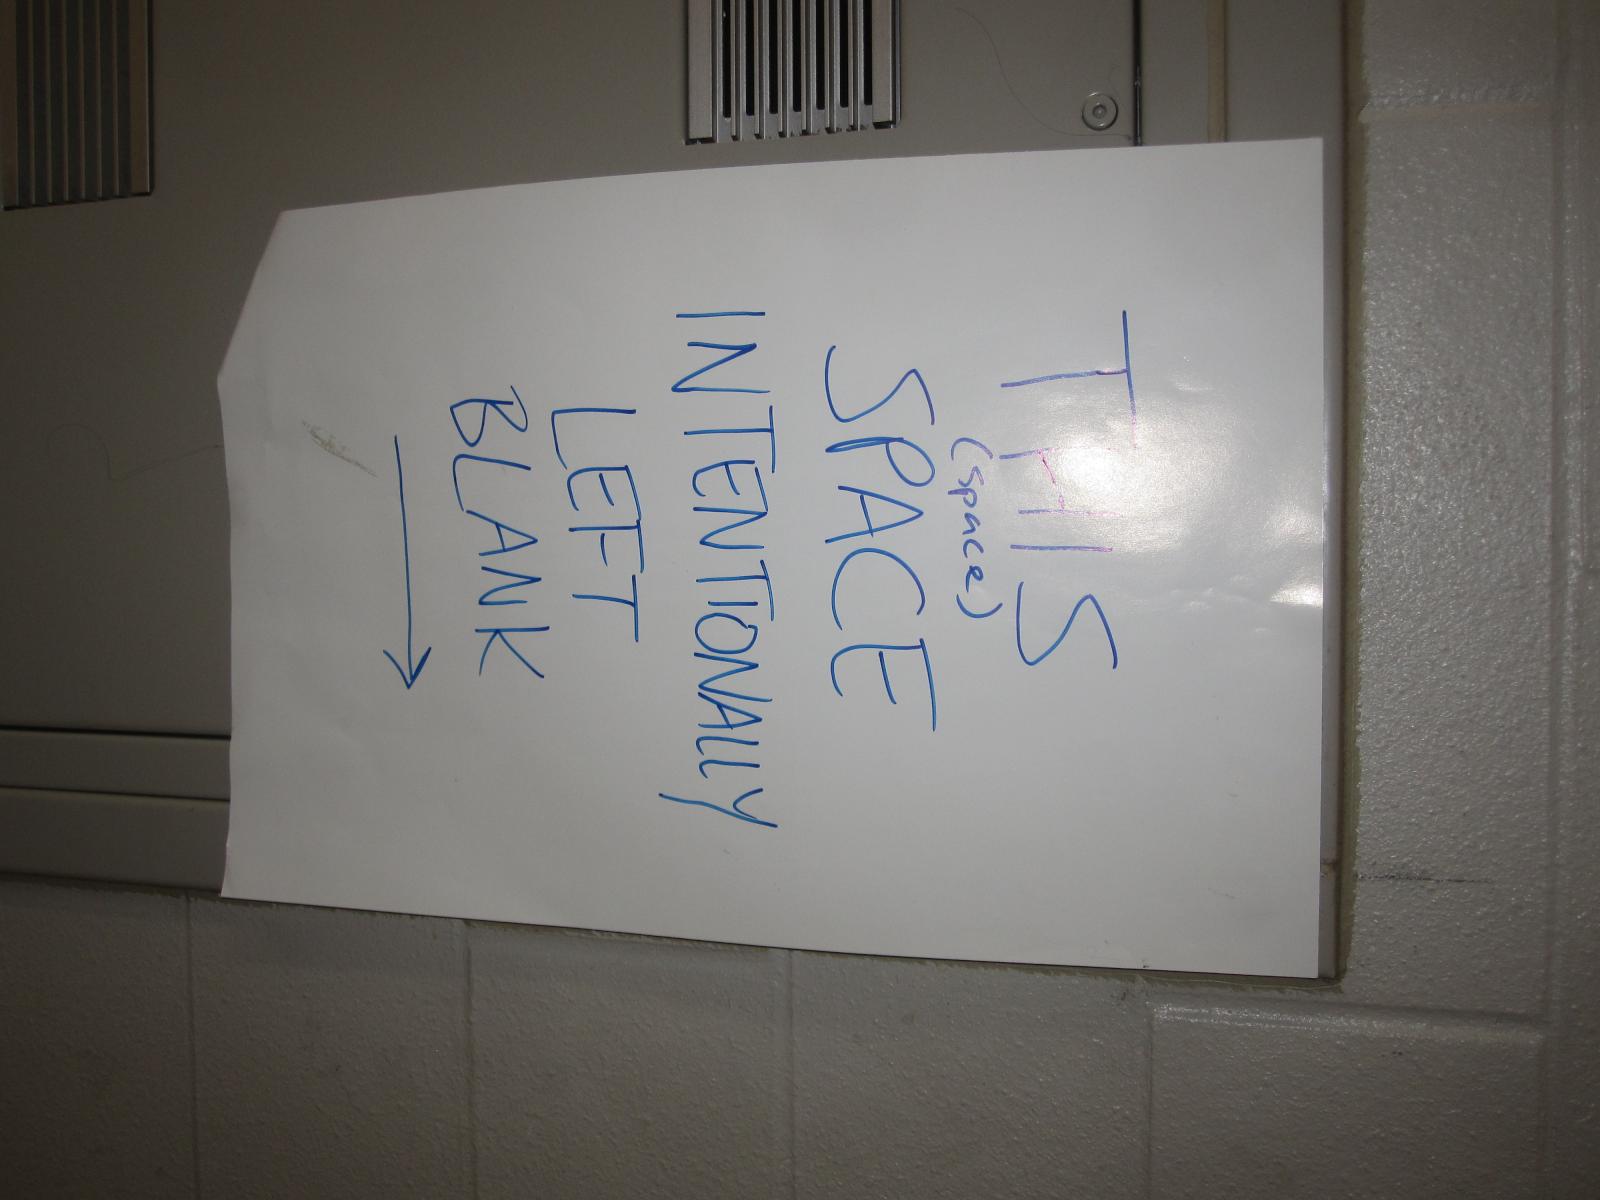 THIS
(space)
SPACE
INTENTIONALLY
LEFT
BLANK